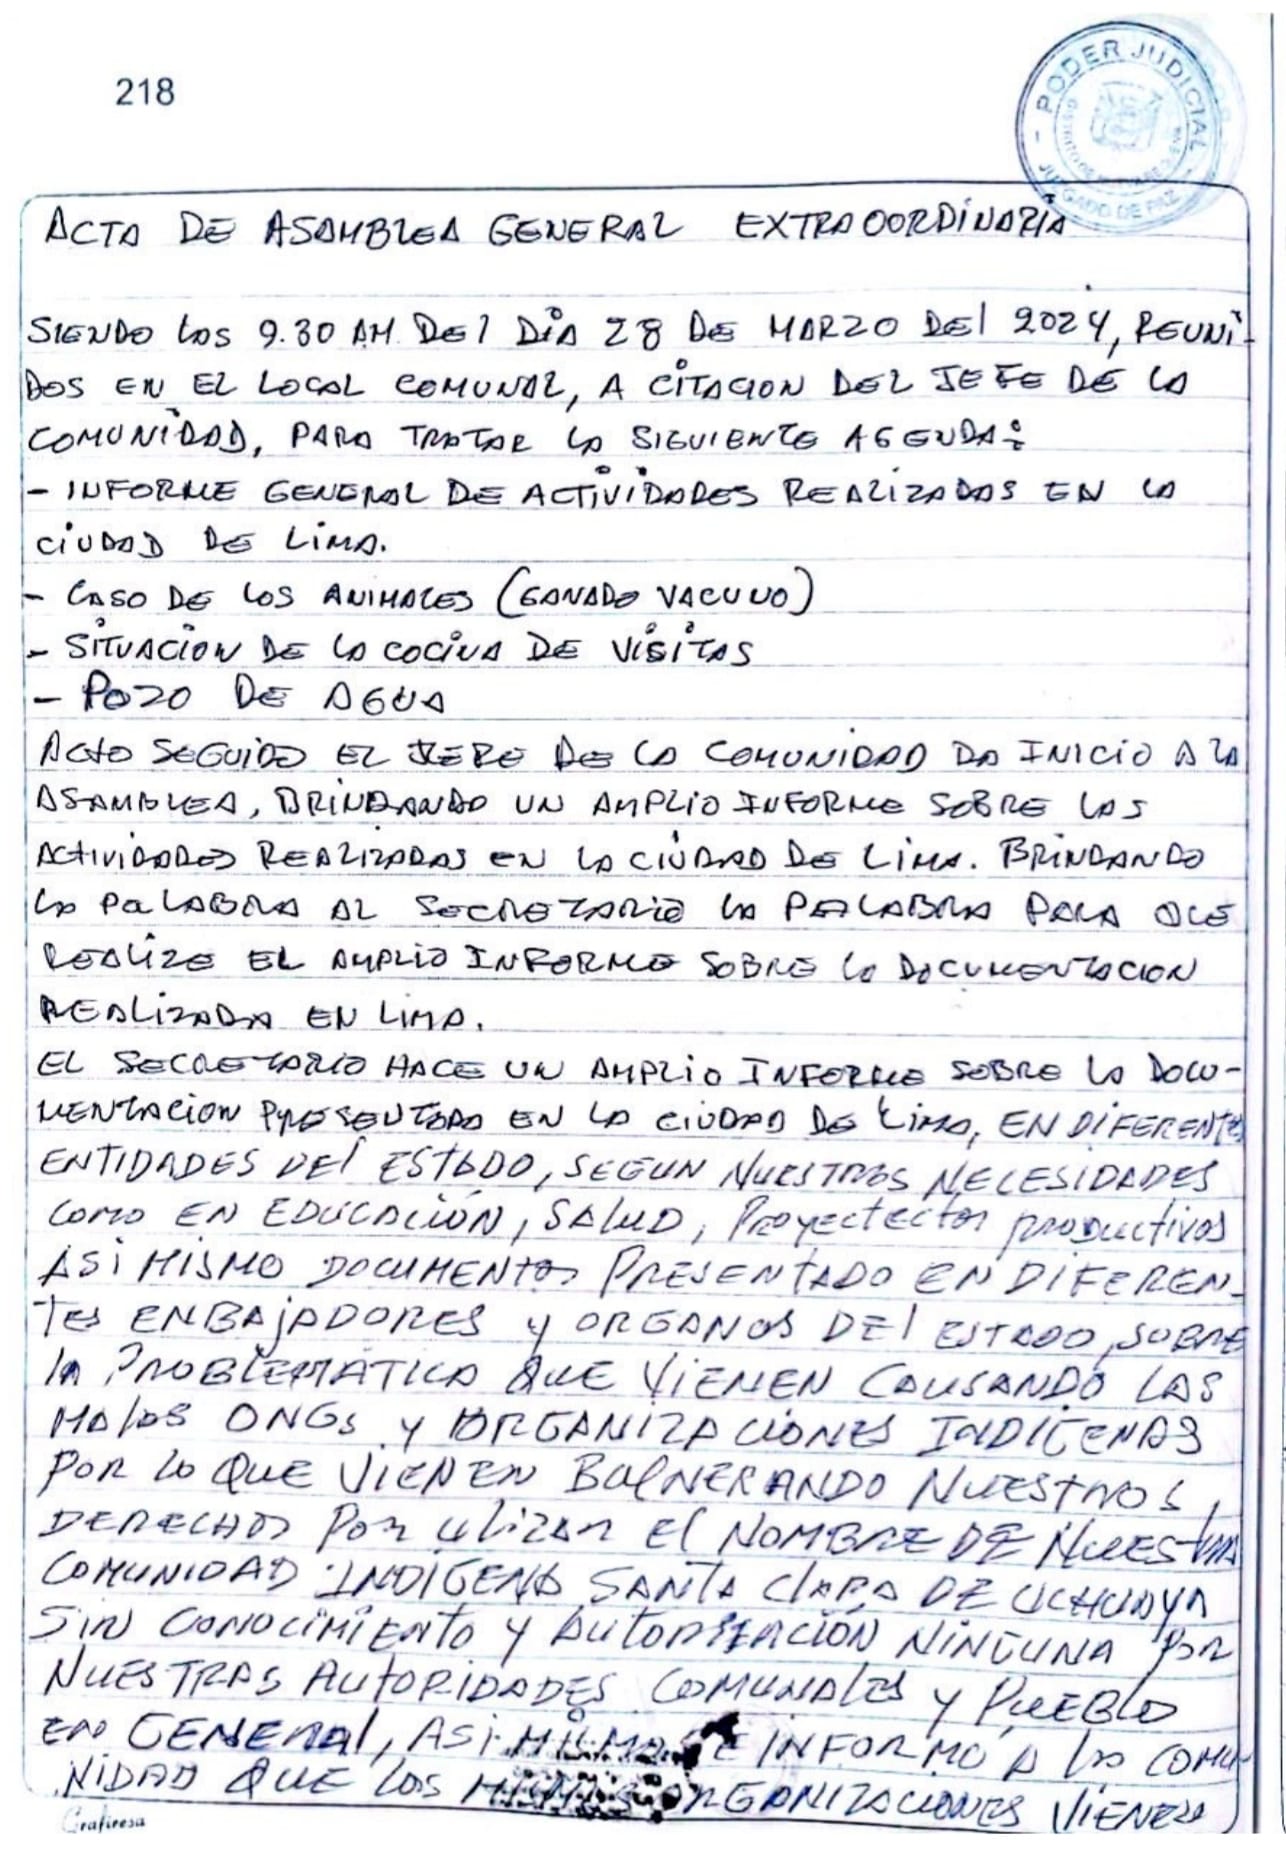 218
PODER JUDICIAL
JUZGADO DE PAZ
ACTA DE ASAMBLEA GENERAL EXTRAOORDINARIA
SIENDO LAS 9.30 AM DEL DÍA 28 DE MARZO DEL 2024, REUNI-
DOS EN EL LOCAL COMUNAL, A CITACION DEL JEFE DE LA
COMUNIDAD, PARA TRATAR LA SIGUIENTE AGENDA:
- INFORME GENERAL DE ACTIVIDADES REALIZADAS EN LA
CIUDAD DE LIMA.
- CASO DE LOS ANIMALES (GANADO VACUNO)
- SITUACION DE LA COCINA DE VISITAS
- POZO DE AGUA
ACTO SEGUIDO EL JEFE DE LA COMUNIDAD DA INICIO A LA
ASAMBLEA, BRINDANDO UN AMPLIO INFORME SOBRE LAS
ACTIVIDADES REALIZADAS EN LA CIUDAD DE LIMA. BRINDANDO
LA PALABRA AL SECRETARIO LA PALABRA PARA QUE
REALIZE EL AMPLIO INFORME SOBRE LA DOCUMENTACION
REALIZADA EN LIMA.
EL SECRETARIO HACE UN AMPLIO INFORME SOBRE LA DOCU-
MENTACION PRESENTADA EN LA CIUDAD DE LIMA, EN DIFERENTES
ENTIDADES DEL ESTADO, SEGUN NUESTRAS NECESIDADES
COMO EN EDUCACIÓN, SALUD, PROYECTECTOS PRODUCTIVOS
ASI MISMO DOCUMENTOS PRESENTADO EN DIFEREN-
TES ENBAJADORES Y ORGANOS DEL ESTADO, SOBRE
LA PROBLEMÁTICA QUE VIENEN CAUSANDO LAS
MALAS ONGs Y ORGANIZACIONES INDIGENAS
POR LO QUE VIENEN BULNERANDO NUESTROS
DERECHOS POR UTIZAR EL NOMBRE DE NUESTRA
COMUNIDAD INDIGENA SANTA CLARA DE UCHUNYA
SIN CONOCIMIENTO Y AUTORIZACIÓN NINGUNA POR
NUESTRAS AUTORIDADES COMUNALES Y PUEBLO
EN GENERAL, ASI MISMO SE INFORMÓ A LA COMU-
NIDAD QUE LOS MISMOS ORGANIZACIONES VIENEN
Grafinesa